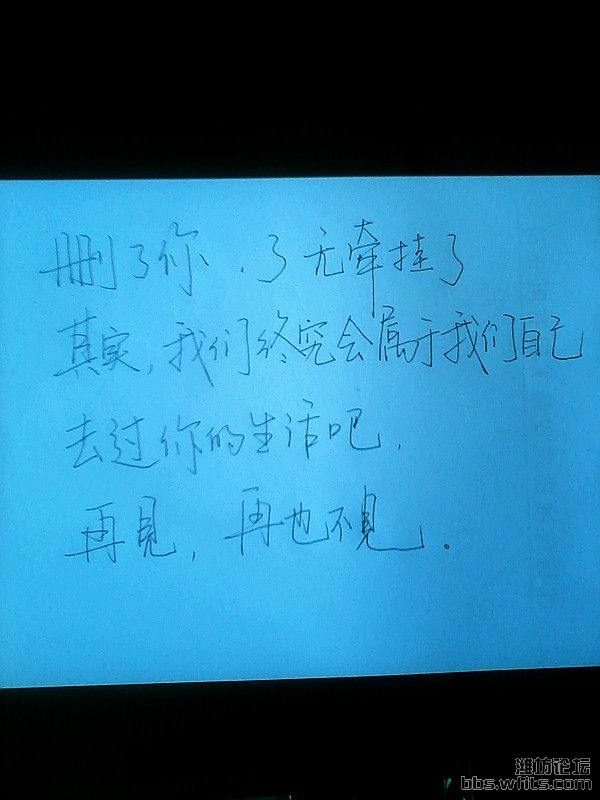 删了你，了无牵挂了
其实，我们终究会属于我们自己
去过你的生活吧，
再见，再也不见.
潍坊论坛
bbs.wfits.com